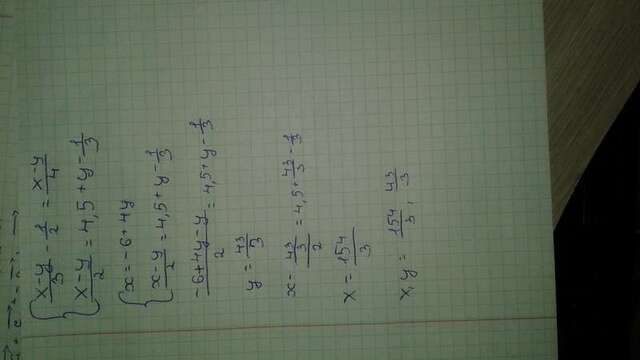 x-y/3 - 1/2 = x-y/4
x-y/2 = 4,5 + y - 1/3
x = -6+4y
x-y/2 = 4,5 + y - 1/3
-6+4y-y/2 = 4,5 + y - 1/3
y = 43/3
x - 43/3 / 2 = 4,5 + 43/3 - 1/3
x = 154/3
x, y = 154/3, 43/3